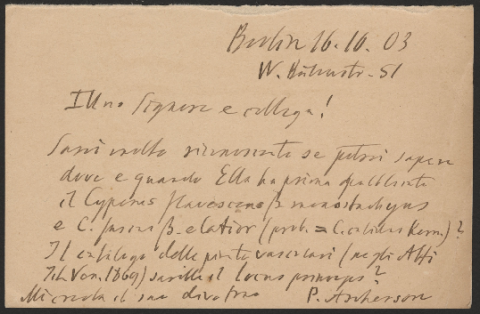 Berlin 16.10.03
W. Bülowstr. 51
Illmo Signore e collega!
Sarei molto riconoscente se potrei sapere
dove e quando Ella ha prima pubblicato
il Cyperus flavescens β. monostachyus
e C. fuscus β. elatior (prob. = C. Kern.)?
Il catalogo delle piante vascolari (negli Atti
Ven. 1869) sarebbe il locus princeps?
Mi creda il suo divotmo P. Ascherson